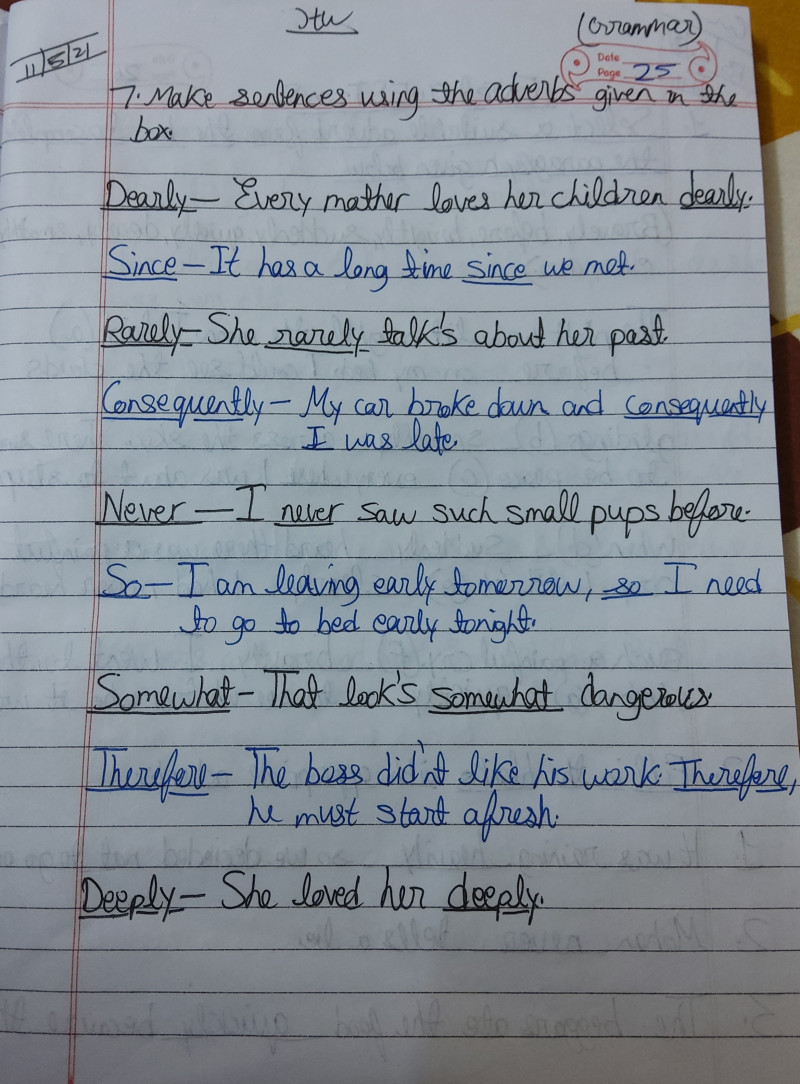 Hw
(Grammar)
11/5/21
Date
Page 25
7. Make sentences using the adverbs given in the
box.
Dearly – Every mather loves her children dearly.
Since – It has a long time since we met.
Rarely – She rarely talk's about her past.
Consequently – My car broke down and consequently
I was late.
Never – I never saw such small pups before.
So – I am leaving early tomorrow, so I need
to go to bed early tonight.
Somewhat – That look's somewhat dangerous.
Therefore – The boss did'nt like his work. Therefore,
he must start afresh.
Deeply – She loved her deeply.